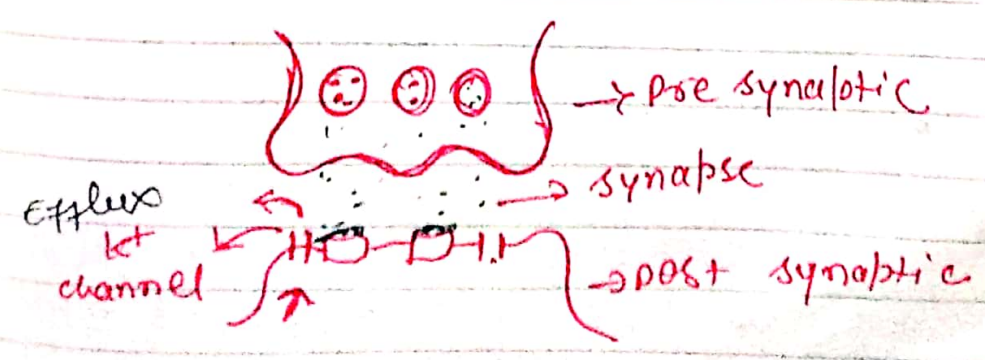 Pre synaptic
synapse
Efflux
K+
channel
post synaptic